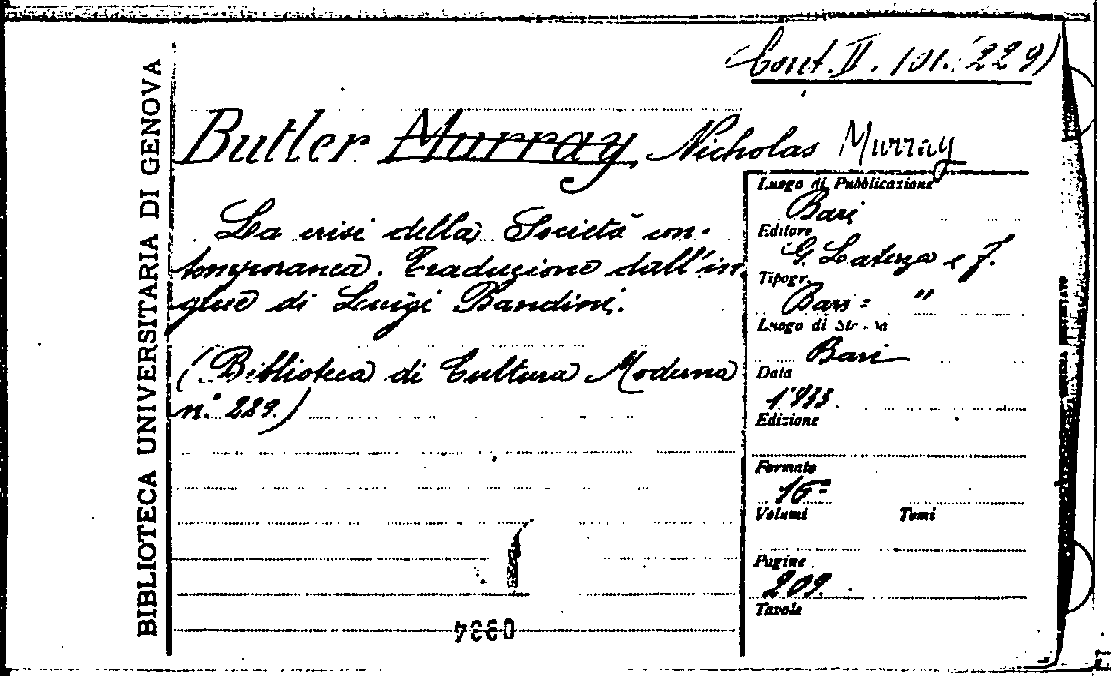 BIBLIOTECA UNIVERSITARIA DI GENOVA
Cont. II. 101. (229)
Butler Murray Nicholas Murray
La crisi della Società con-
temporanea. Traduzione dall'in-
glese di Luigi Bandini.
(Biblioteca di Cultura Moderna
n. 229.)
Luogo di Pubblicazione
Bari
Editore
G. Laterza e f.
Tipogr.
Bari = "
Luogo di
Bari
Data
1933.
Edizione
Formato
16=
Volumi Tomi
Pagine
209.
Tavole